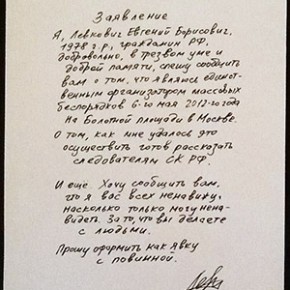 Заявление
Я, Левкович Евгений Борисович,
1978 г.р., гражданин РФ,
добровольно, в трезвом уме и
доброй памяти, спешу сообщить
вам о том, что являюсь единст-
венным организатором массовых
беспорядков 6-го мая 2012-го года
на Болотной площади в Москве.
О том, как мне удалось это
осуществить готов рассказать
следователям СК РФ.
И ещё. Хочу сообщить вам,
что я вас всех ненавижу,
насколько только могу нена-
видеть. За то, что вы делаете
с людьми.
Прошу оформить как явку
с повинной.